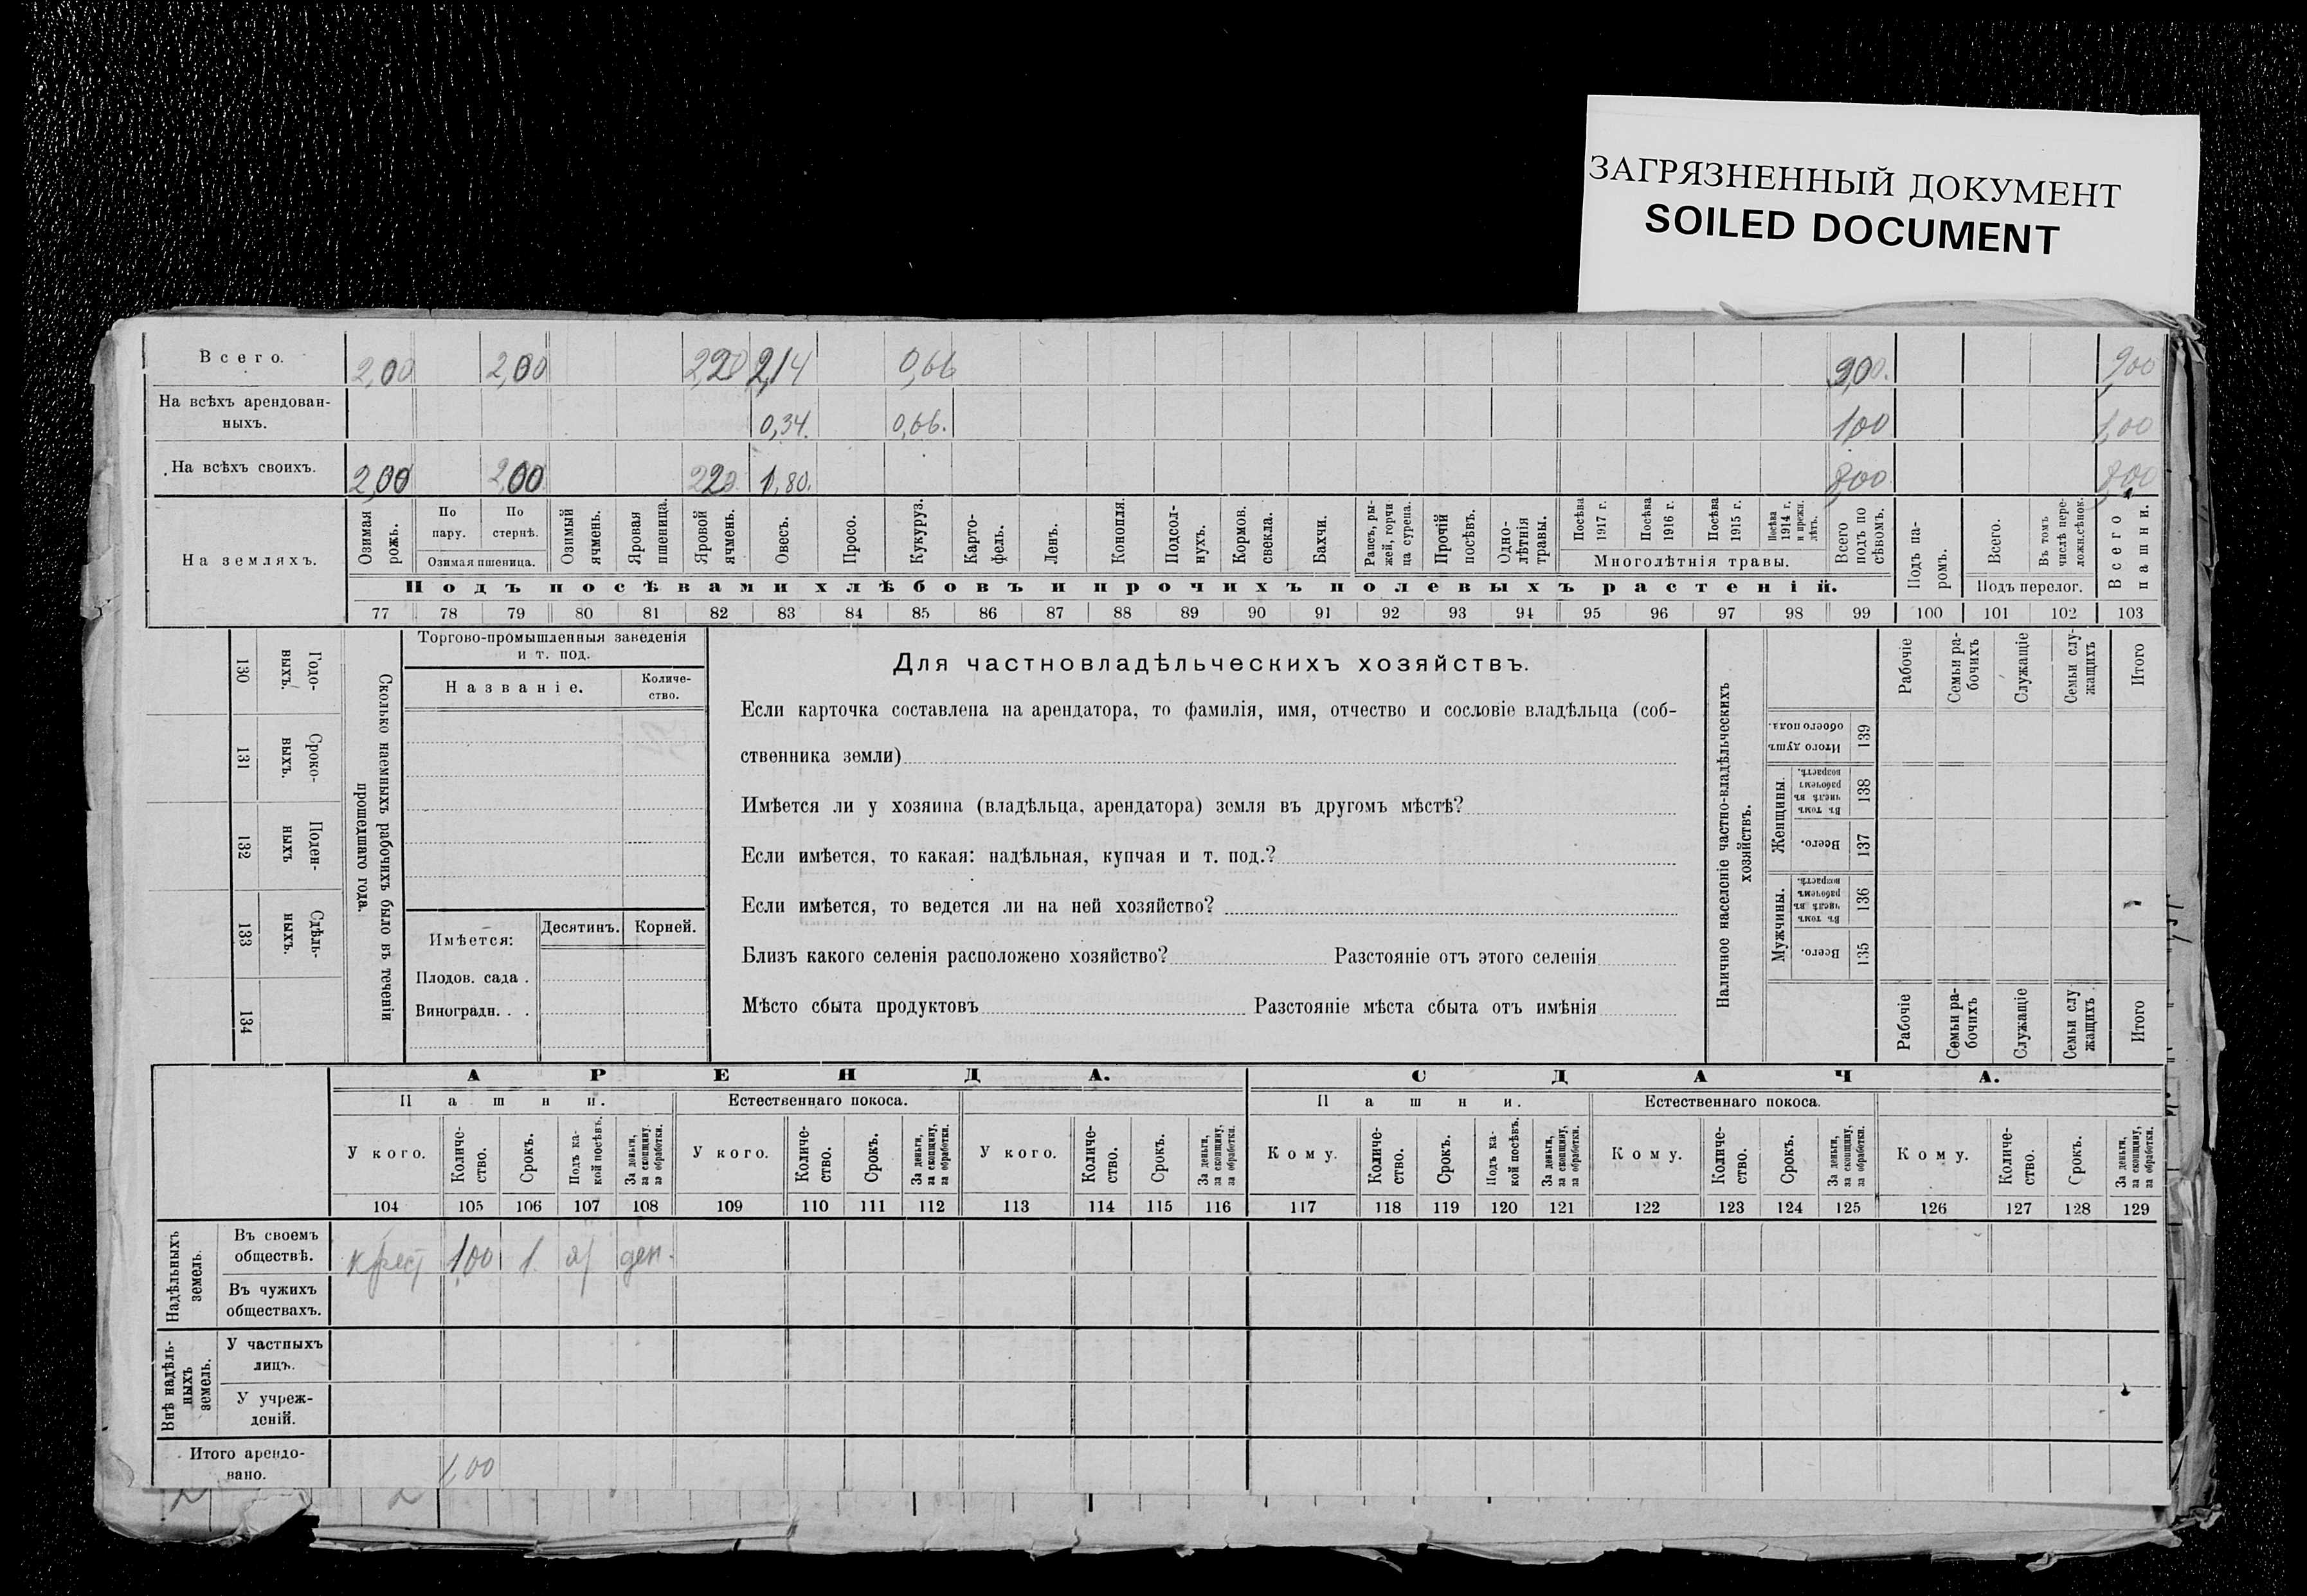 ЗАГРЯЗНЕННЫЙ ДОКУМЕНТ
SOILED DOCUMENT
Всего. 2,00 2,00 2,20 2,14 0,66 9,00. 9,00
На всѣхъ арендован-
ныхъ. 0,34. 0,66. 1,00 1,00
На всѣхъ своихъ. 2,00 2,00 2,20 1,80. 8,00 8,00
На земляхъ.
Озимая рожь.
По пару.
По стернѣ.
Озимая пшеница.
Озимый ячмень.
Яровая пшеница.
Яровой ячмень.
Овесъ.
Просо.
Кукуруз.
Карто-
фель.
Ленъ.
Конопля
Подсол-
нухъ.
Кормов. свекла.
Бахчи.
Рапсъ, ры-
жей, горчи
ца сурепа.
Прочій посѣвъ.
Одно-
лѣтнія
травы.
Посѣва 1917 г.
Посѣва 1916 г.
Посѣва 1915 г.
Посѣва 1914 г. и прежн. лѣтъ.
Многолѣтнія травы.
Всего подъ по сѣвомъ.
Подъ па-
ромъ.
Всего.
Въ томъ числѣ пере-
ложн.сѣнок.
Подъ перелог.
Всего пашни.
Подъ посѣвами хлѣбовъ и прочихъ полевыхъ растеній.
77 78 79 80 81 82 83 84 85 86 87 88 89 90 91 92 93 94 95 96 97 98 99 100 101 102 103
130 Годо-
выхъ.
131 Сроко-
выхъ.
132 Поден-
ныхъ
133 Сдѣль-
ныхъ.
134
Сколько наемныхъ рабочихъ было въ теченіи
прошедшаго года.
Торгово-промышленныя заведенія
и т. под.
Названіе. Количе-
ство.
Имѣется: Десятинъ. Корней.
Плодов. сада .
Виноградн. . .
Для частновладѣльческихъ хозяйствъ.
Если карточка составлена на арендатора, то фамилія, имя, отчество и сословіе владѣльца (соб-
ственника земли)
Имѣется ли у хозяина (владѣльца, арендатора) земля въ другомъ мѣстѣ?
Если имѣется, то какая: надѣльная, купчая и т. под.?
Если имѣется, то ведется ли на ней хозяйство?
Близъ какого селенія расположено хозяйство? Разстояніе отъ этого селенія
Мѣсто сбыта продуктовъ Разстояніе мѣста сбыта отъ имѣнія
Наличное населеніе частно-владѣльческихъ
хозяйствъ.
Итого душъ обоего пола. 139
Женщины.
Въ томъ числѣ въ рабочемъ возрастѣ. 138
Всего. 137
Мужчины.
Въ томъ числѣ въ рабочемъ возрастѣ. 136
Всего. 135
Рабочіе
Семьи ра-
бочихъ
Служащіе
Семьи слу-
жащихъ
Итого
Рабочіе
Семьи ра-
бочихъ
Служащіе
Семьи слу
жащихъ
Итого
АРЕНДА. СДАЧА.
Пашни. Естественнаго покоса. Пашни. Естественнаго покоса.
У кого. Количе-
ство. Срокъ. Подъ ка-
кой посѣвъ. За деньги, за скопщину, за обработки.
У кого. Количе-
ство. Срокъ. За деньги, за скопщину, за обработки.
У кого. Количе-
ство. Срокъ. За деньги, за скопщину, за обработки.
Кому. Количе-
ство. Срокъ. Подъ ка-
кой посѣвъ. За деньги, за скопщину, за обработки.
Кому. Количе-
ство. Срокъ. За деньги, за скопщину, за обработки.
Кому. Количе-
ство. Срокъ. За деньги, за скопщину, за обработки.
104 105 106 107 108 109 110 111 112 113 114 115 116 117 118 119 120 121 122 123 124 125 126 127 128 129
Надѣльныхъ
земель.
Въ своемъ
обществѣ. крест 1,00 1 яр ден.
Въ чужихъ
обществахъ.
Внѣ надѣль-
ныхъ
земель.
У частныхъ
лицъ.
У учреж-
деній.
Итого арендо-
вано. 1,00